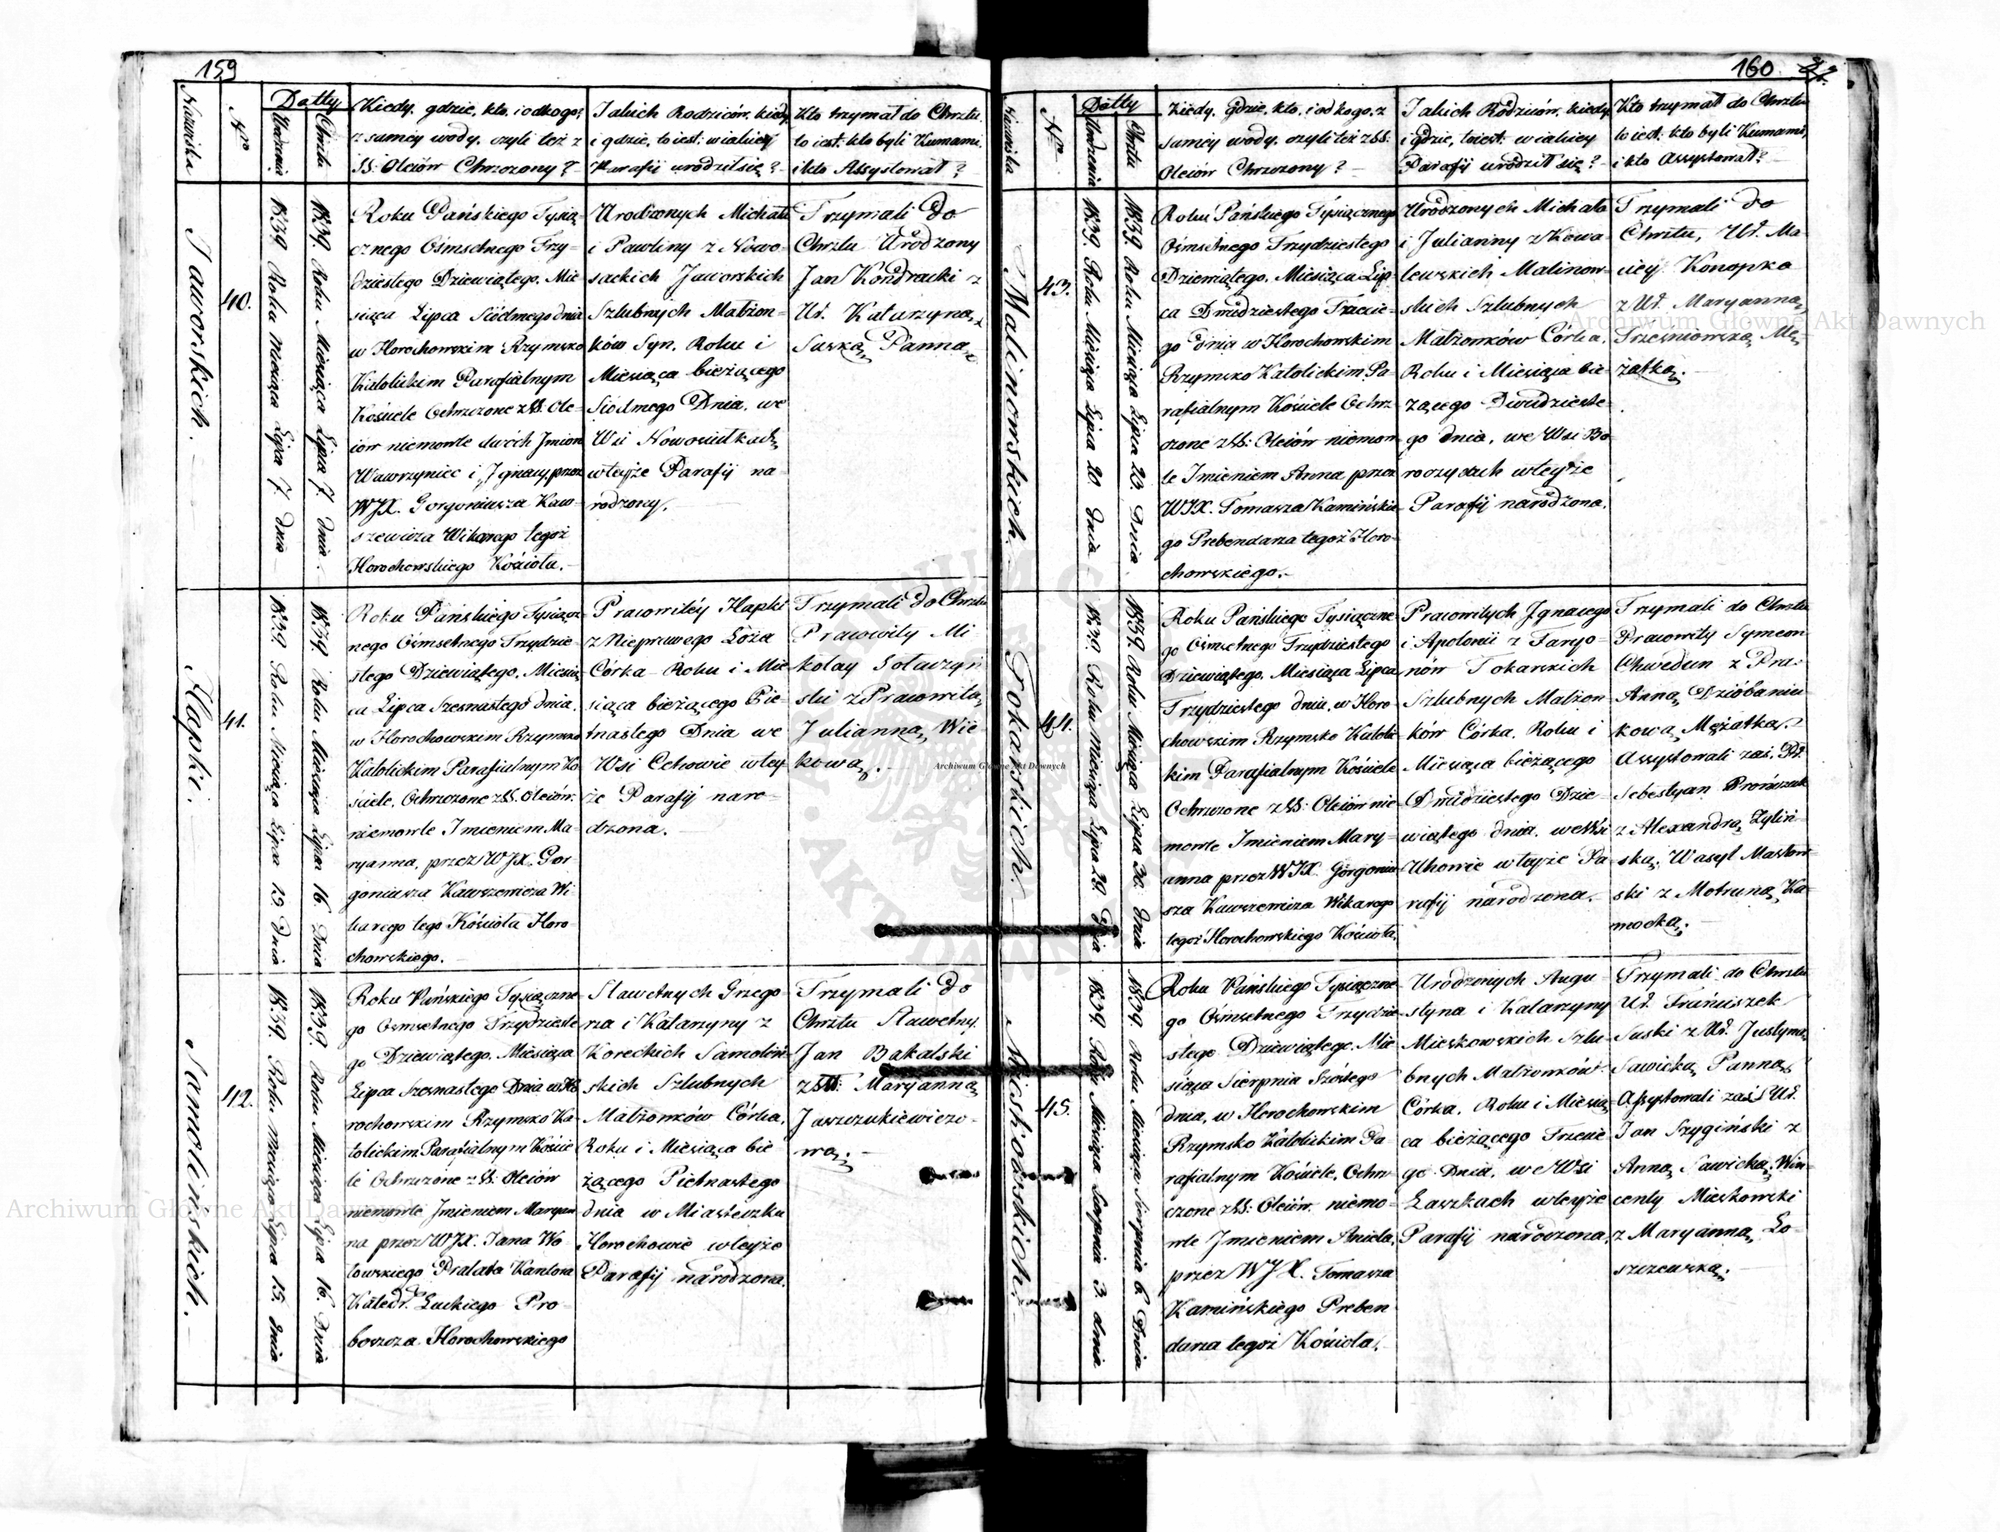 159
Nazwiska
N°
Datty
Urodzenia
Chrztu
Kiedy, gdzie, kto, i od kogo,
z samey wody, czyli też z
SS: Oleiów Chrzczony?
Jakich Rodziców, kiedy
i gdzie, to iest: w iakiey
Parafij urodził się?
Kto trzymał do Chrztu,
to iest: kto byli Kumami,
i kto Assystował?
Jaworskich.
40.
1839. Roku Miesiąca Lipca 7. Dnia
1839. Roku Miesiąca Lipca 7. Dnia.
Roku Pańskiego Tysią-
cznego Ośmsetnego Trzy-
dziestego Dziewiątego, Mie-
siąca Lipca Siódmego dnia
w Horochowskim Rzymsko
Katolickim Parafialnym
Kościele Ochrzczone z SS. Ole-
iów niemowle dwóch Jmion
Wawrzyniec i Jgnacy, przez
WJX. Gorgoniusza Kaw-
szewicza Wikarego tegoż
Horochowskiego Kościoła.
Urodzonych Michała
i Pawliny z Nowo-
sackich Jaworskich
Szlubnych Małżon-
ków Syn, Roku i
Miesiąca bieżącego
Siódmego Dnia, we
Wsi Nowosiłkach,
w teyże Parafij na-
rodzony.
Trzymali do
Chrztu Urodzony
Jan Kondracki z
Ur. Katarzyną
Suską Panną.
Hapki.
41.
1839. Roku Miesiąca Lipca 15. Dnia
1839. Roku Miesiąca Lipca 16. Dnia
Roku Pańskiego Tysiącz-
nego Ośmsetnego Trzydzie-
stego Dziewiątego, Miesią-
ca Lipca Szesnastego dnia,
w Horochowskim Rzymsko
Katolickim Parafialnym Ko-
ściele, Ochrzczone z SS. Oleiów.
niemowle Jmieniem Ma-
ryanna, przez WJX. Gor-
goniusza Kawszewicza Wi-
karego tego Kościoła Horo-
chowskiego.
Pracowitéy Hapki
z Nieprawego Łoża
Córka Roku i Mie-
siąca bieżącego Pie-
tnastego Dnia we
Wsi Ochowie w tey-
że Parafij naro-
dzona.
Trzymali do Chrztu
Pracowity Mi-
kołay Sołaczyń-
ski z Pracowitą
Julianną Wię-
kową.
Samolińskich.
42.
1839. Roku Miesiąca Lipca 15. dnia
1839. Roku Miesiąca Lipca 16. Dnia
Roku Pańskiego Tysiączne-
go Ośmsetnego Trzydzieste-
go Dziewiątego, Miesiąca
Lipca Szesnastego Dnia w Ho-
rochowskim Rzymsko Ka-
tolickim Parafialnym Koście-
le Ochrzczone z SS. Oleiów
niemowle Jmieniem Maryan-
na przez WJX. Jana Wo-
łowskiego Prałata Kantora
Katedr. Łuckiego Pro-
boszcza Horochowskiego
Sławetnych Grzego-
rza i Katarzyny z
Koreckich Samoliń-
skich Szlubnych
Małżonków Córka,
Roku i Miesiąca bie-
żącego Pietnastego
dnia w Miasteczku
Horochowie w teyże
Parafij narodzona.
Trzymali do
Chrztu Sławetny
Jan Bakalski
z Maryanną
Jaszczukiewiczo-
wą.
160.
Nazwiska
N°
Datty
Urodzenia
Chrztu
Kiedy, gdzie, kto, i od kogo, z
samey wody, czyli też z SS:
Oleiów Chrzczony?
Jakich Rodziców, kiedy
i gdzie, to iest: w iakiey
Parafij urodził się?
Kto trzymał do Chrztu
to iest: kto byli Kumami,
i kto Assystował?
Malinowskich.
43.
1839. Roku Miesiąca Lipca 20. Dnia
1839. Roku Miesiąca Lipca 20. Dnia.
Roku Pańskiego Tysiącznego
Ośmsetnego Trzydziestego
Dziewiątego, Miesiąca Lip-
ca Dwudziestego Trzecie-
go dnia w Horochowskim
Rzymsko Katolickim Pa-
rafialnym Kościele Ochrz-
czone z SS: Oleiów niemow-
le Jmieniem Anna przez
WJX. Tomasza Kamińskie-
go Prebendarza tegoż Horo-
chowskiego.
Urodzonych Michała
i Julianny z Kowa-
lewskich Malinow-
skich Szlubnych
Małżonków Córka,
Roku i Miesiąca bie-
żącego Dwudzieste-
go dnia, we Wsi Bo-
roczycach w teyże
Parafij narodzona.
Trzymali do
Chrztu, Ur. Ma-
ciey Konopka
z Ur. Maryanną
Trześniowską Mę-
żatką.
Tokarskich.
44.
1839. Roku Miesiąca Lipca 29. Dnia
1839. Roku Miesiąca Lipca 30. Dnia
Roku Pańskiego Tysiączne-
go Ośmsetnego Trzydziestego
Dziewiątego, Miesiąca Lipca
Trzydziestego dnia, w Horo-
chowskim Rzymsko Katolic-
kim Parafialnym Kościele
Ochrzczone z SS: Oleiów nie-
mowle Jmieniem Mary-
anna przez WJX. Gorgoniu-
sza Kawszewicza Wikarego
tegoż Horochowskiego Kościoła.
Pracowitych Jgnacego
i Apolonii z Faryo-
nów Tokarskich
Szlubnych Małżon-
ków Córka, Roku i
Miesiąca bieżącego
Dwudziestego Dzie-
wiątego dnia, we Wsi
Uhowie w teyże Pa-
rafij narodzona.
Trzymali do Chrztu
Pracowity Symeon
Chwedun z Prac.
Anną Dziobaniu-
kową Mężatką.
Assystowali zaś, Pr.
Sebestyan Prończuk
z Alexandrą Zyliń-
ską; Wasyl Masłow-
ski z Motruną Ka-
mocką.
Mieszkowskich.
45.
1839. Roku Miesiąca Sierpnia 3. dnia
1839. Roku Miesiąca Sierpnia 6. Dnia
Roku Pańskiego Tysiączne-
go Ośmsetnego Trzydzie-
stego Dziewiątego, Mie-
siąca Sierpnia Szóstego
dnia, w Horochowskim
Rzymsko Katolickim Pa-
rafialnym Kościele, Ochrz-
czone z SS: Oleiów, niemo-
wle Jmieniem Aniela,
przez WJX. Tomasza
Kamińskiego Preben-
darza tegoż Kościoła.
Urodzonych Augu-
styna i Katarzyny
Mieszkowskich Szlu-
bnych Małżonków
Córka, Roku i Miesią-
ca bieżącego Trzecie-
go Dnia, we Wsi
Łaszkach w teyże
Parafij narodzona.
Trzymali do Chrztu
Ur. Franciszek
Suski z Ur. Justyną
Sawicką Panną
Assystowali zaś Ur.
Jan Szygiński z
Anną Sawicką, Win-
centy Mieszkowski
z Maryanną Ło-
szczewską.
Archiwum Główne Akt Dawnych
Archiwum Główne Akt Dawnych
Archiwum Główne Akt Dawnych